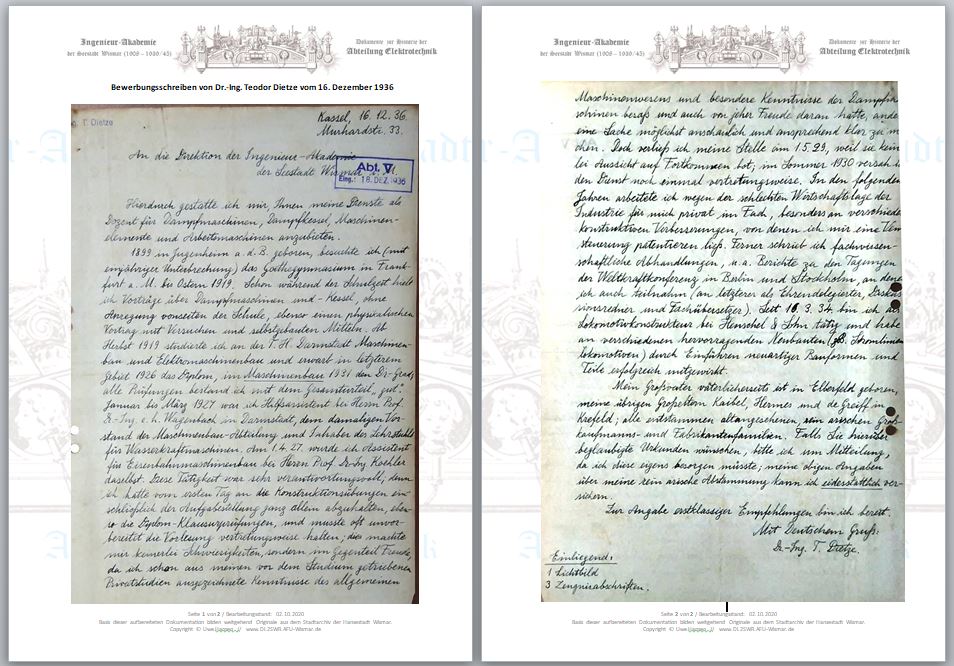 Ingenieur-Akademie
der Seestadt Wismar (1908 – 1939/45)
Dokumente zur Historie der
Abteilung Elektrotechnik
Bewerbungsschreiben von Dr.-Ing. Teodor Dietze vom 16. Dezember 1936
T. Dietze
Kassel, 16. 12. 36.
Murhardstr. 33.
An die Direktion der Ingenieur-Akademie
der Seestadt Wismar
Abt. V.
Eing.: 18. DEZ. 1936
Hierdurch gestatte ich mir, Ihnen meine Dienste als
Dozent für Dampfmaschinen, Dampfkessel, Maschinen-
elemente und Arbeitsmaschinen anzubieten.
1899 in Jugenheim a. d. B. geboren, besuchte ich (mit
einjähriger Unterbrechung) das Goethegymnasium in Frank-
furt a. M. bis Ostern 1919. Schon während der Schulzeit hielt
ich Vorträge über Dampfmaschinen und -Kessel, ohne
Anregung vonseiten der Schule, ebenso einen physikalischen
Vortrag mit Versuchen und selbstgebauten Mitteln. Ab
Herbst 1919 studierte ich an der T. H. Darmstadt Maschinen-
bau und Elektromaschinenbau und erwarb in letzterem
Gebiet 1926 das Diplom, im Maschinenbau 1931 den Dr-Grad;
alle Prüfungen bestand ich mit dem Gesamturteil „gut".
Januar bis März 1927 war ich Hilfsassistent bei Herrn Prof.
Dr.-Ing. e. h. Wagenbach in Darmstadt, dem damaligen Vor-
stand der Maschinenbau-Abteilung und Inhaber des Lehrstuhls
für Wasserkraftmaschinen. Am 1. 4. 27. wurde ich Assistent
für Eisenbahnmaschinenbau bei Herrn Prof. Dr-Ing Koehler
daselbst. Diese Tätigkeit war sehr verantwortungsvoll; denn
ich hatte vom ersten Tag an die Konstruktionsübungen ein-
schließlich der Aufgabestellung ganz allein abzuhalten, eben-
so die Diplom-Klausurprüfungen, und musste oft unvor-
bereitet die Vorlesung vertretungsweise halten; dies machte
mir keinerlei Schwierigkeiten, sondern im Gegenteil Freude,
da ich schon aus meinen vor dem Studium getriebenen
Privatstudien ausgezeichnete Kenntnisse des allgemeinen
Seite 1 von 2 / Bearbeitungsstand: 02.10.2020
Basis dieser aufbereiteten Dokumentation bilden weitgehend Originale aus dem Stadtarchiv der Hansestadt Wismar.
Copyright © Uwe // www.DL2SWR.AFU-Wismar.de
Ingenieur-Akademie
der Seestadt Wismar (1908 – 1939/45)
Dokumente zur Historie der
Abteilung Elektrotechnik
Maschinenwesens und besondere Kenntnisse der Dampfma
schinen besaß und auch von jeher Freude daran hatte, ande
eine Sache möglichst anschaulich und ansprechend klar zu m
chen. Doch verließ ich meine Stelle am 1.5.29, weil sie kein
lei Aussicht auf Fortkommen bot; im Sommer 1930 versah i
den Dienst noch einmal vertretungsweise. In den folgenden
Jahren arbeitete ich wegen der schlechten Wirtschaftslage der
Industrie für mich privat im Fach, besonders an verschiede
konstruktiven Verbesserungen, von denen ich mir eine Ven
steuerung patentieren ließ. Ferner schrieb ich fachwissen-
schaftliche Abhandlungen, u. a. Berichte zu den Tagungen
der Weltkraftkonferenz in Berlin und Stockholm, an dene
ich auch teilnahm (an letzterer als Ehrendelegierter, Diskus
sionsredner und Fachübersetzer). Seit 16. 3. 34. bin ich als
Lokomotivkonstrukteur bei Henschel & Sohn tätig und habe
an verschiedenen hervorragenden Neubauten (zB Stromlinien
lokomotiven) durch Einführen neuartiger Bauformen und
Teile erfolgreich mitgewirkt.
Mein Großvater väterlicherseits ist in Elberfeld geboren,
meine übrigen Großeltern Kaibel, Hermes und de Greiff in
Krefeld; alle entstammen altangesehenen, rein arischen Groß-
kaufmanns- und Fabrikantenfamilien. Falls Sie hierüber
beglaubigte Urkunden wünschen, bitte ich um Mitteilung,
da ich diese eigens besorgen müsste; meine obigen Angaben
über meine rein arische Abstammung kann ich eidesstattlich ver-
sichern.
Zur Angabe erstklassiger Empfehlungen bin ich bereit.
Mit Deutschem Gruß:
Dr.-Ing. T. Dietze.
Einliegend:
1 Lichtbild
3 Zeugnisabschriften.
Seite 2 von 2 / Bearbeitungsstand: 02.10.2020
Basis dieser aufbereiteten Dokumentation bilden weitgehend Originale aus dem Stadtarchiv der Hansestadt Wismar.
Copyright © Uwe // www.DL2SWR.AFU-Wismar.de